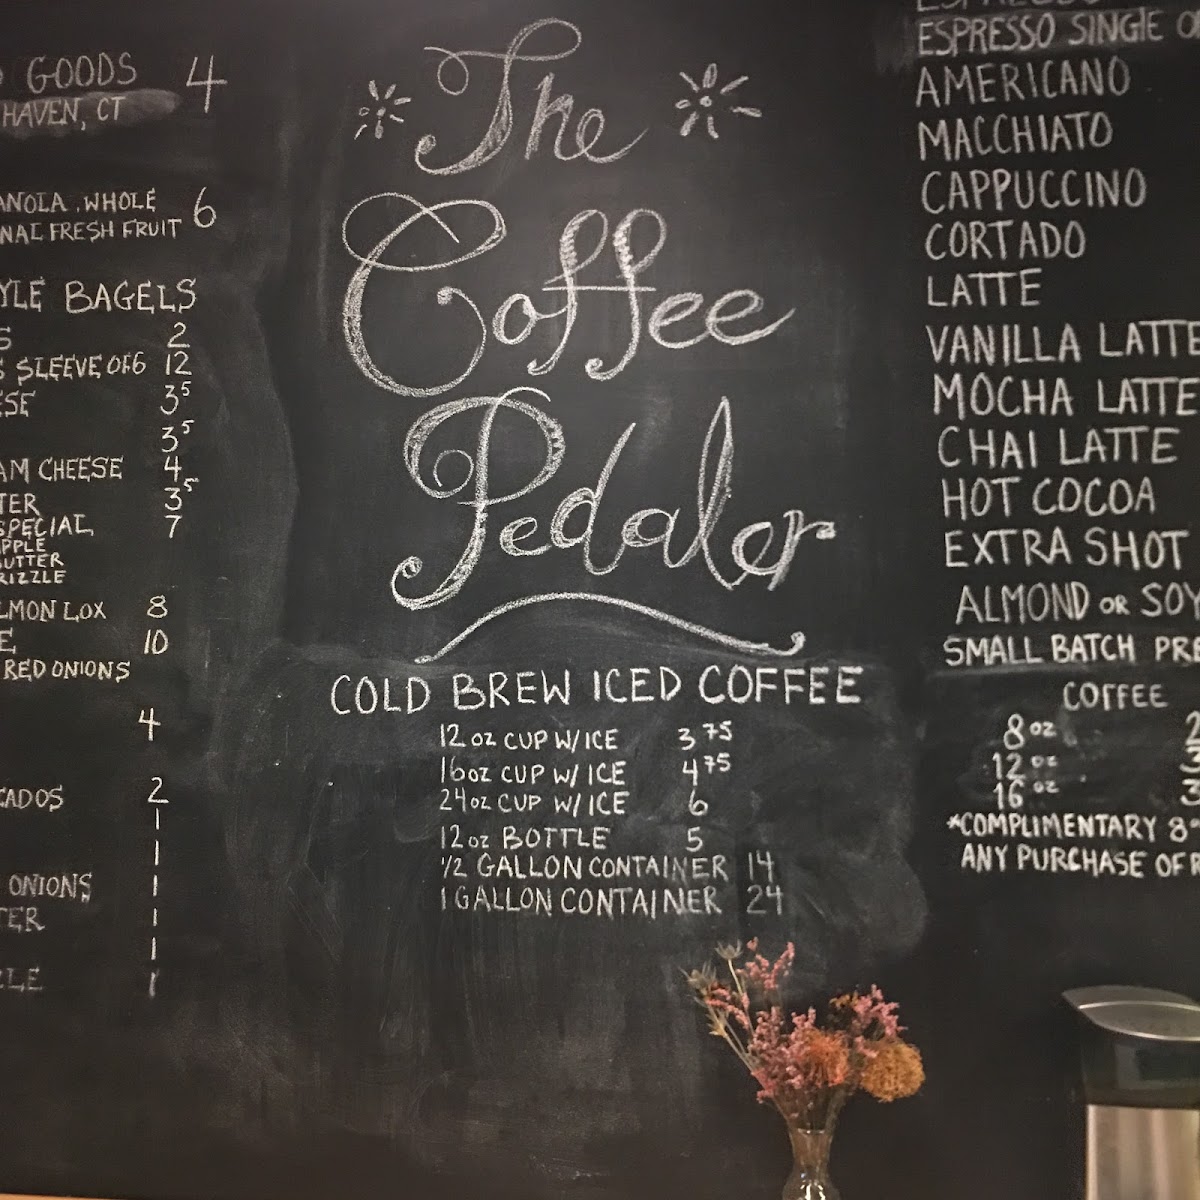 GOODS 4
HAVEN, CT
WHOLE 6
FRESH FRUIT
BAGELS
2
SLEEVE OF 6 12
3⁵
3⁵
CHEESE 4
3⁵
SPECIAL 7
LOX 8
10
RED ONIONS
4
2
1
1
ONIONS 1
1
1
1
The
Coffee
Pedaler
COLD BREW ICED COFFEE
12 oz CUP W/ ICE 3 75
16oz CUP W/ ICE 4 75
24oz CUP W/ ICE 6
12oz BOTTLE 5
1/2 GALLON CONTAINER 14
1 GALLON CONTAINER 24
ESPRESSO SINGLE
AMERICANO
MACCHIATO
CAPPUCCINO
CORTADO
LATTE
VANILLA LATTE
MOCHA LATTE
CHAI LATTE
HOT COCOA
EXTRA SHOT
ALMOND OR SOY
SMALL BATCH
COFFEE
8 oz
12 oz
16 oz
*COMPLIMENTARY 8
ANY PURCHASE OF